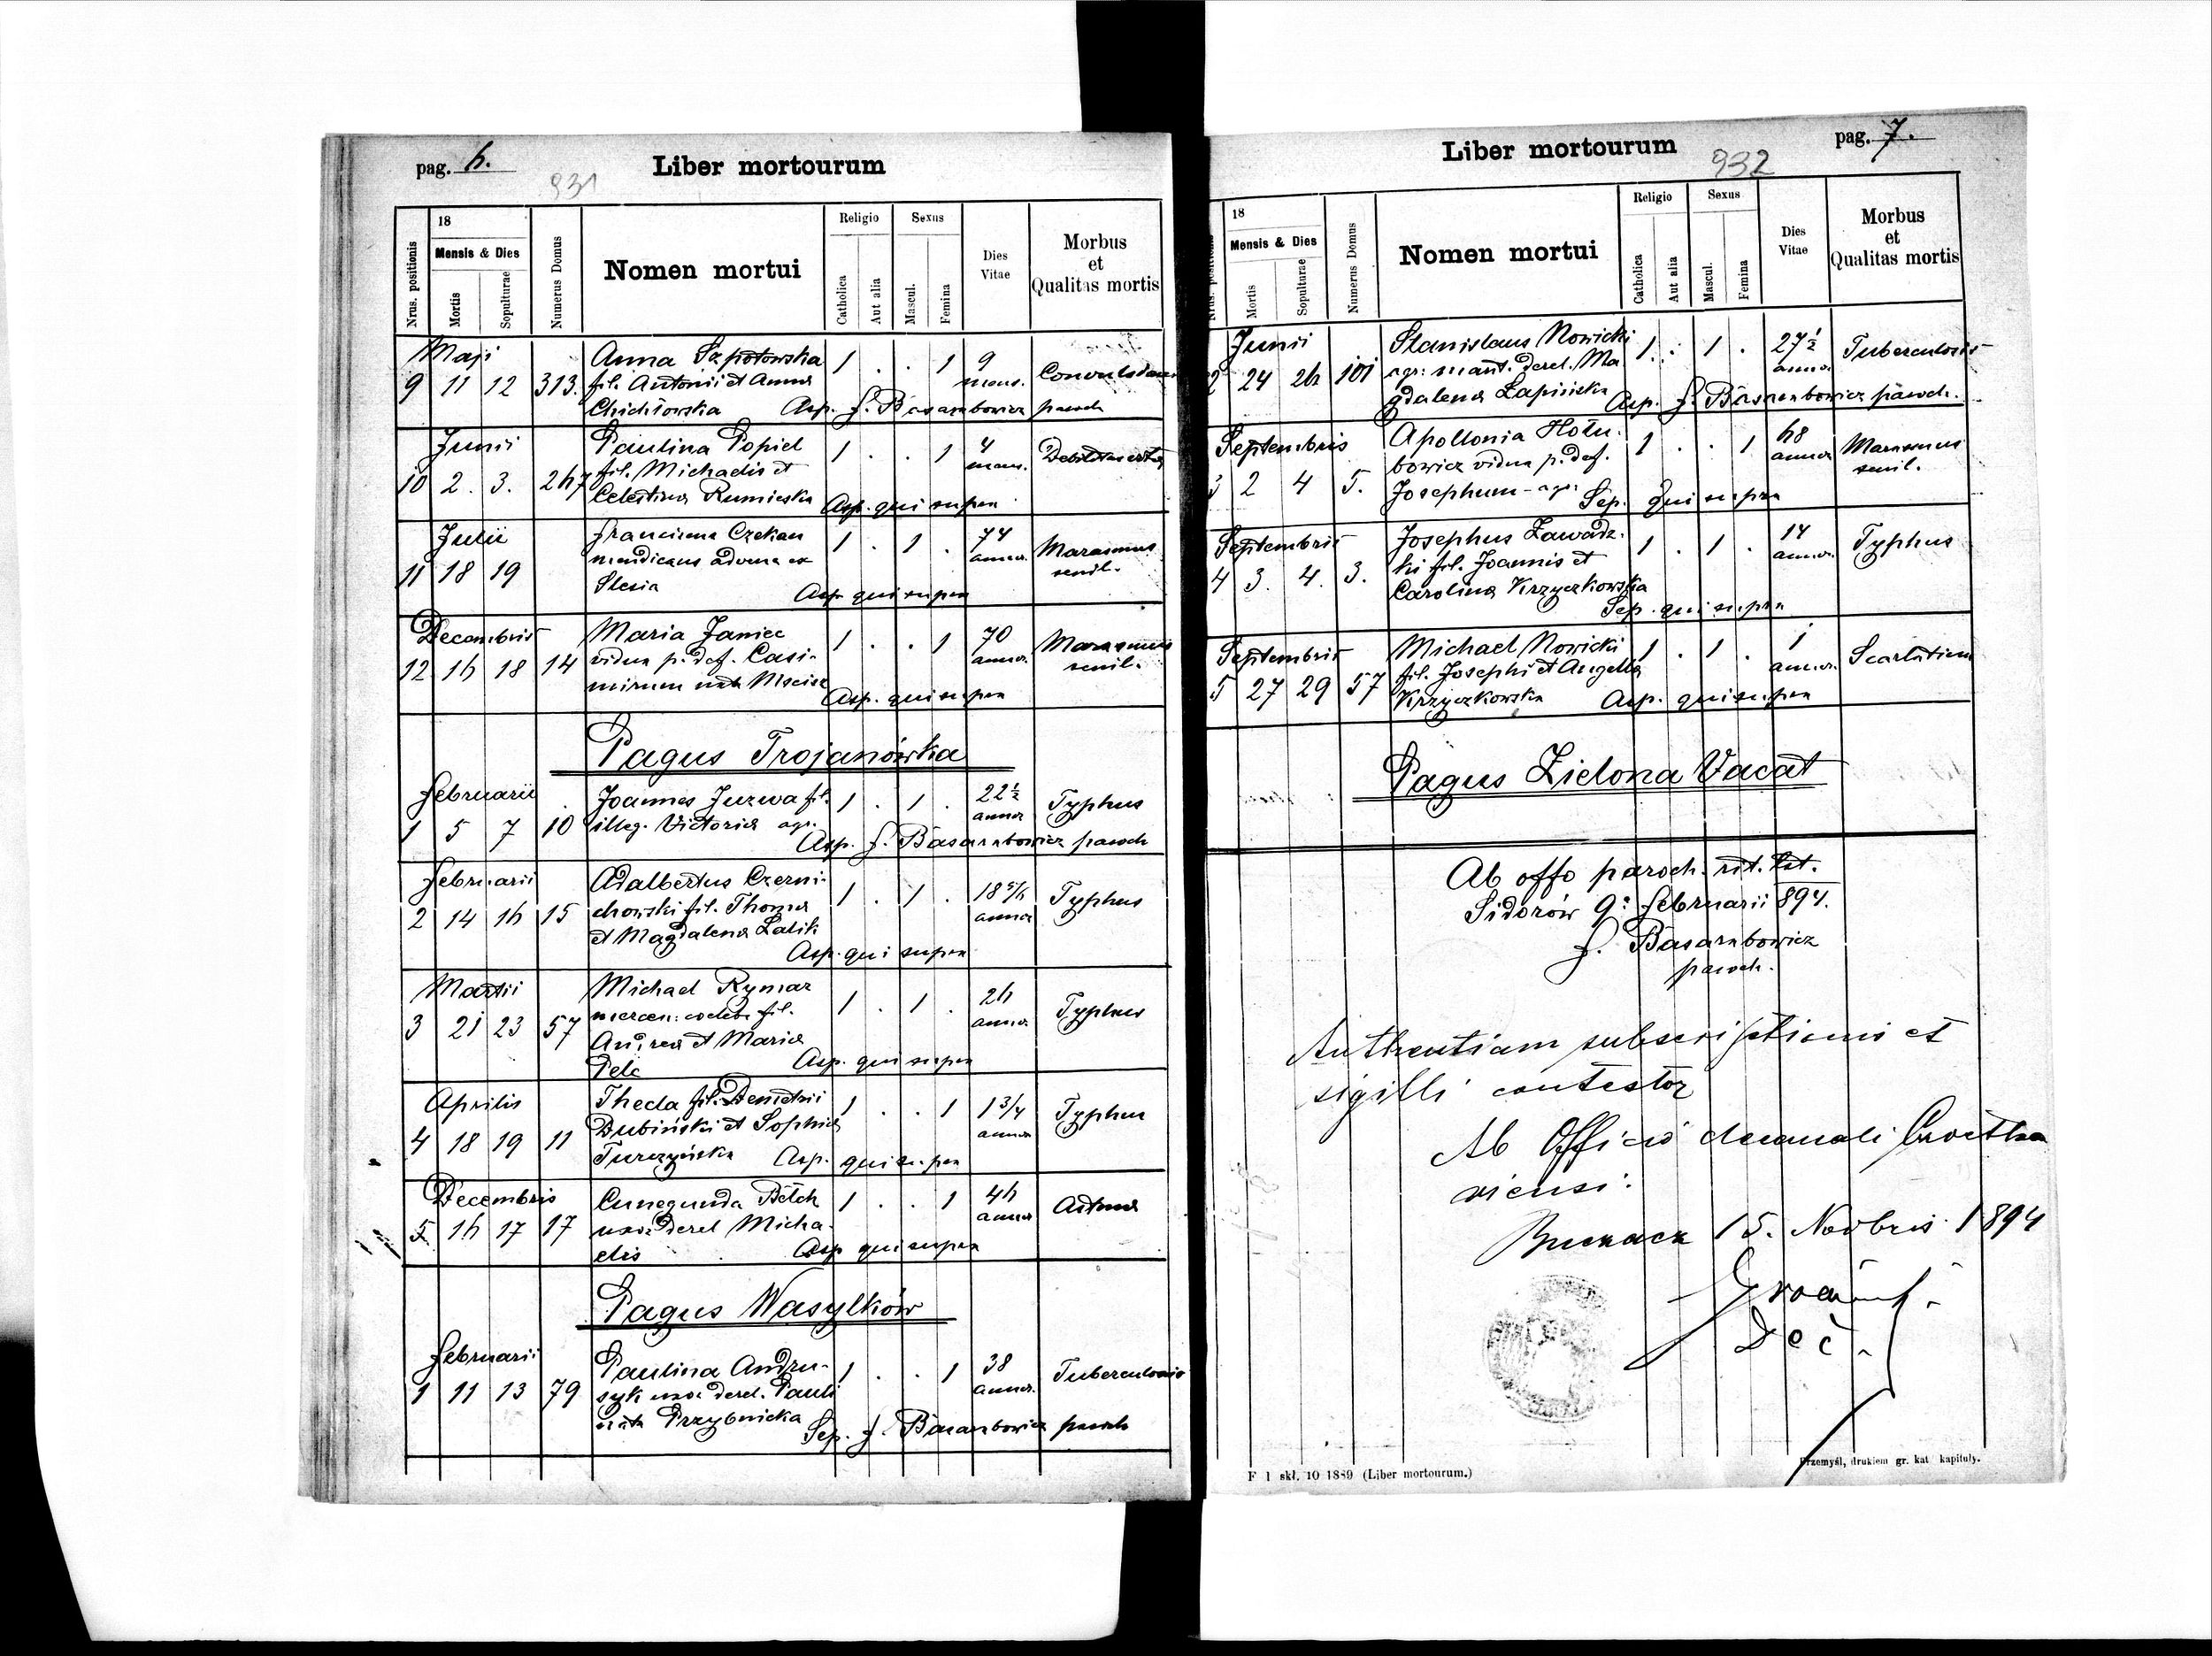 pag. 6.
931
Liber mortourum
Nrus. positionis
18
Mensis & Dies
Mortis
Sepulturae
Numerus Domus
Nomen mortui
Religio
Catholica
Aut alia
Sexus
Mascul.
Femina
Dies Vitae
Morbus
et
Qualitas mortis
Maji Anna Szpotowska 1 . . 1 9
9 11 12 313. fil. Antonii et Annae mens.
Asp. J. Basarabowicz paroch
Junii Paulina Popiel 1 . . 1 4
10 2. 3. 267 fil. Michaelis et mens.
Celestina Rumieska Asp. qui supra
Julii Czekan 1 . 1 . 74 Marasmus
11 18 19 mendicans advena ex annor. senil.
Slesia Asp. qui supra
Decembris Maria Janiec 1 . . 1 70 Marasmus
12 16 18 14 vidua p. def. Casi- annor. senil.
mirum nata Asp. qui supra
Pagus Trojanówka
Februarii Joannes Jurwa fil. 1 . 1 . 22½ Typhus
1 5 7 10 illeg. Victoriae agr. annor
Asp. J. Basarabowicz paroch
Februarii Adalbertus Czerni- 1 . 1 . 18 5/6 Typhus
2 14 16 15 chowski fil. Thomae annor
et Magdalena Lalik
Asp. qui supra
Martii Michael Rymar 1 . 1 . 26 Typhus
3 21 23 57 mercen: coeleb. fil. annor.
Andreae et Mariae
Pelc Asp. qui supra
Aprilis Thecla fil. Demetrii 1 . . 1 1 3/4 Typhus
4 18 19 11 Dubiński et Sophiae annor
Turczyńska Asp. qui supra
Decembris Cunegunda 1 . . 1 46
5. 16 17 17 uxor derel Micha- annor
elis Asp qui supra
Pagus Wasylków
Februarii Paulina Andru- 1 . . 1 38 Tuberculosis
1 11 13 79 syk uxor derel. Pauli annor.
nata Przybnicka
Sep. J. Basarabowicz paroch
Liber mortourum
932
pag. 7.
Nrus. positionis
18
Mensis & Dies
Mortis
Sepulturae
Numerus Domus
Nomen mortui
Religio
Catholica
Aut alia
Sexus
Mascul.
Femina
Dies
Vitae
Morbus
et
Qualitas mortis
Junii Stanislaus Nowicki 1 . 1 . 27½ Tuberculosis
2 24 26 101 agr: marit. derel. Ma annor
gdalena Lapińska Asp. J. Basarabowicz paroch.
Septembris Apollonia Hołu- 1 . . 1 68 Marasmus
3 2 4 5. bowicz vidua p. def. annor senil.
Josephum - agr: Sep. qui supra
Septembris Josephus Zawadz- 1 . 1 . 14 Typhus
4 3. 4. 3. ki fil. Joannis et annor.
Carolina Krzyczkowska
Sep. qui supra
Septembris Michael Nowicki 1 . 1 . 1 Scarlatina
5 27 29 57 fil. Josephi et Angella annor.
Krzyczkowska Asp. qui supra
Pagus Zielona Vacat
Ab offo paroch. rit. lat.
Sidorów 9: Februarii 894.
J. Basarabowicz
paroch.
Authentiam subscriptionis et
sigilli contestor
Ab Officio decanali
15. Novbris 1894
Dec.
F 1 skł. 10 1889 (Liber mortourum.)
Przemyśl, drukiem gr. kat kapituły.